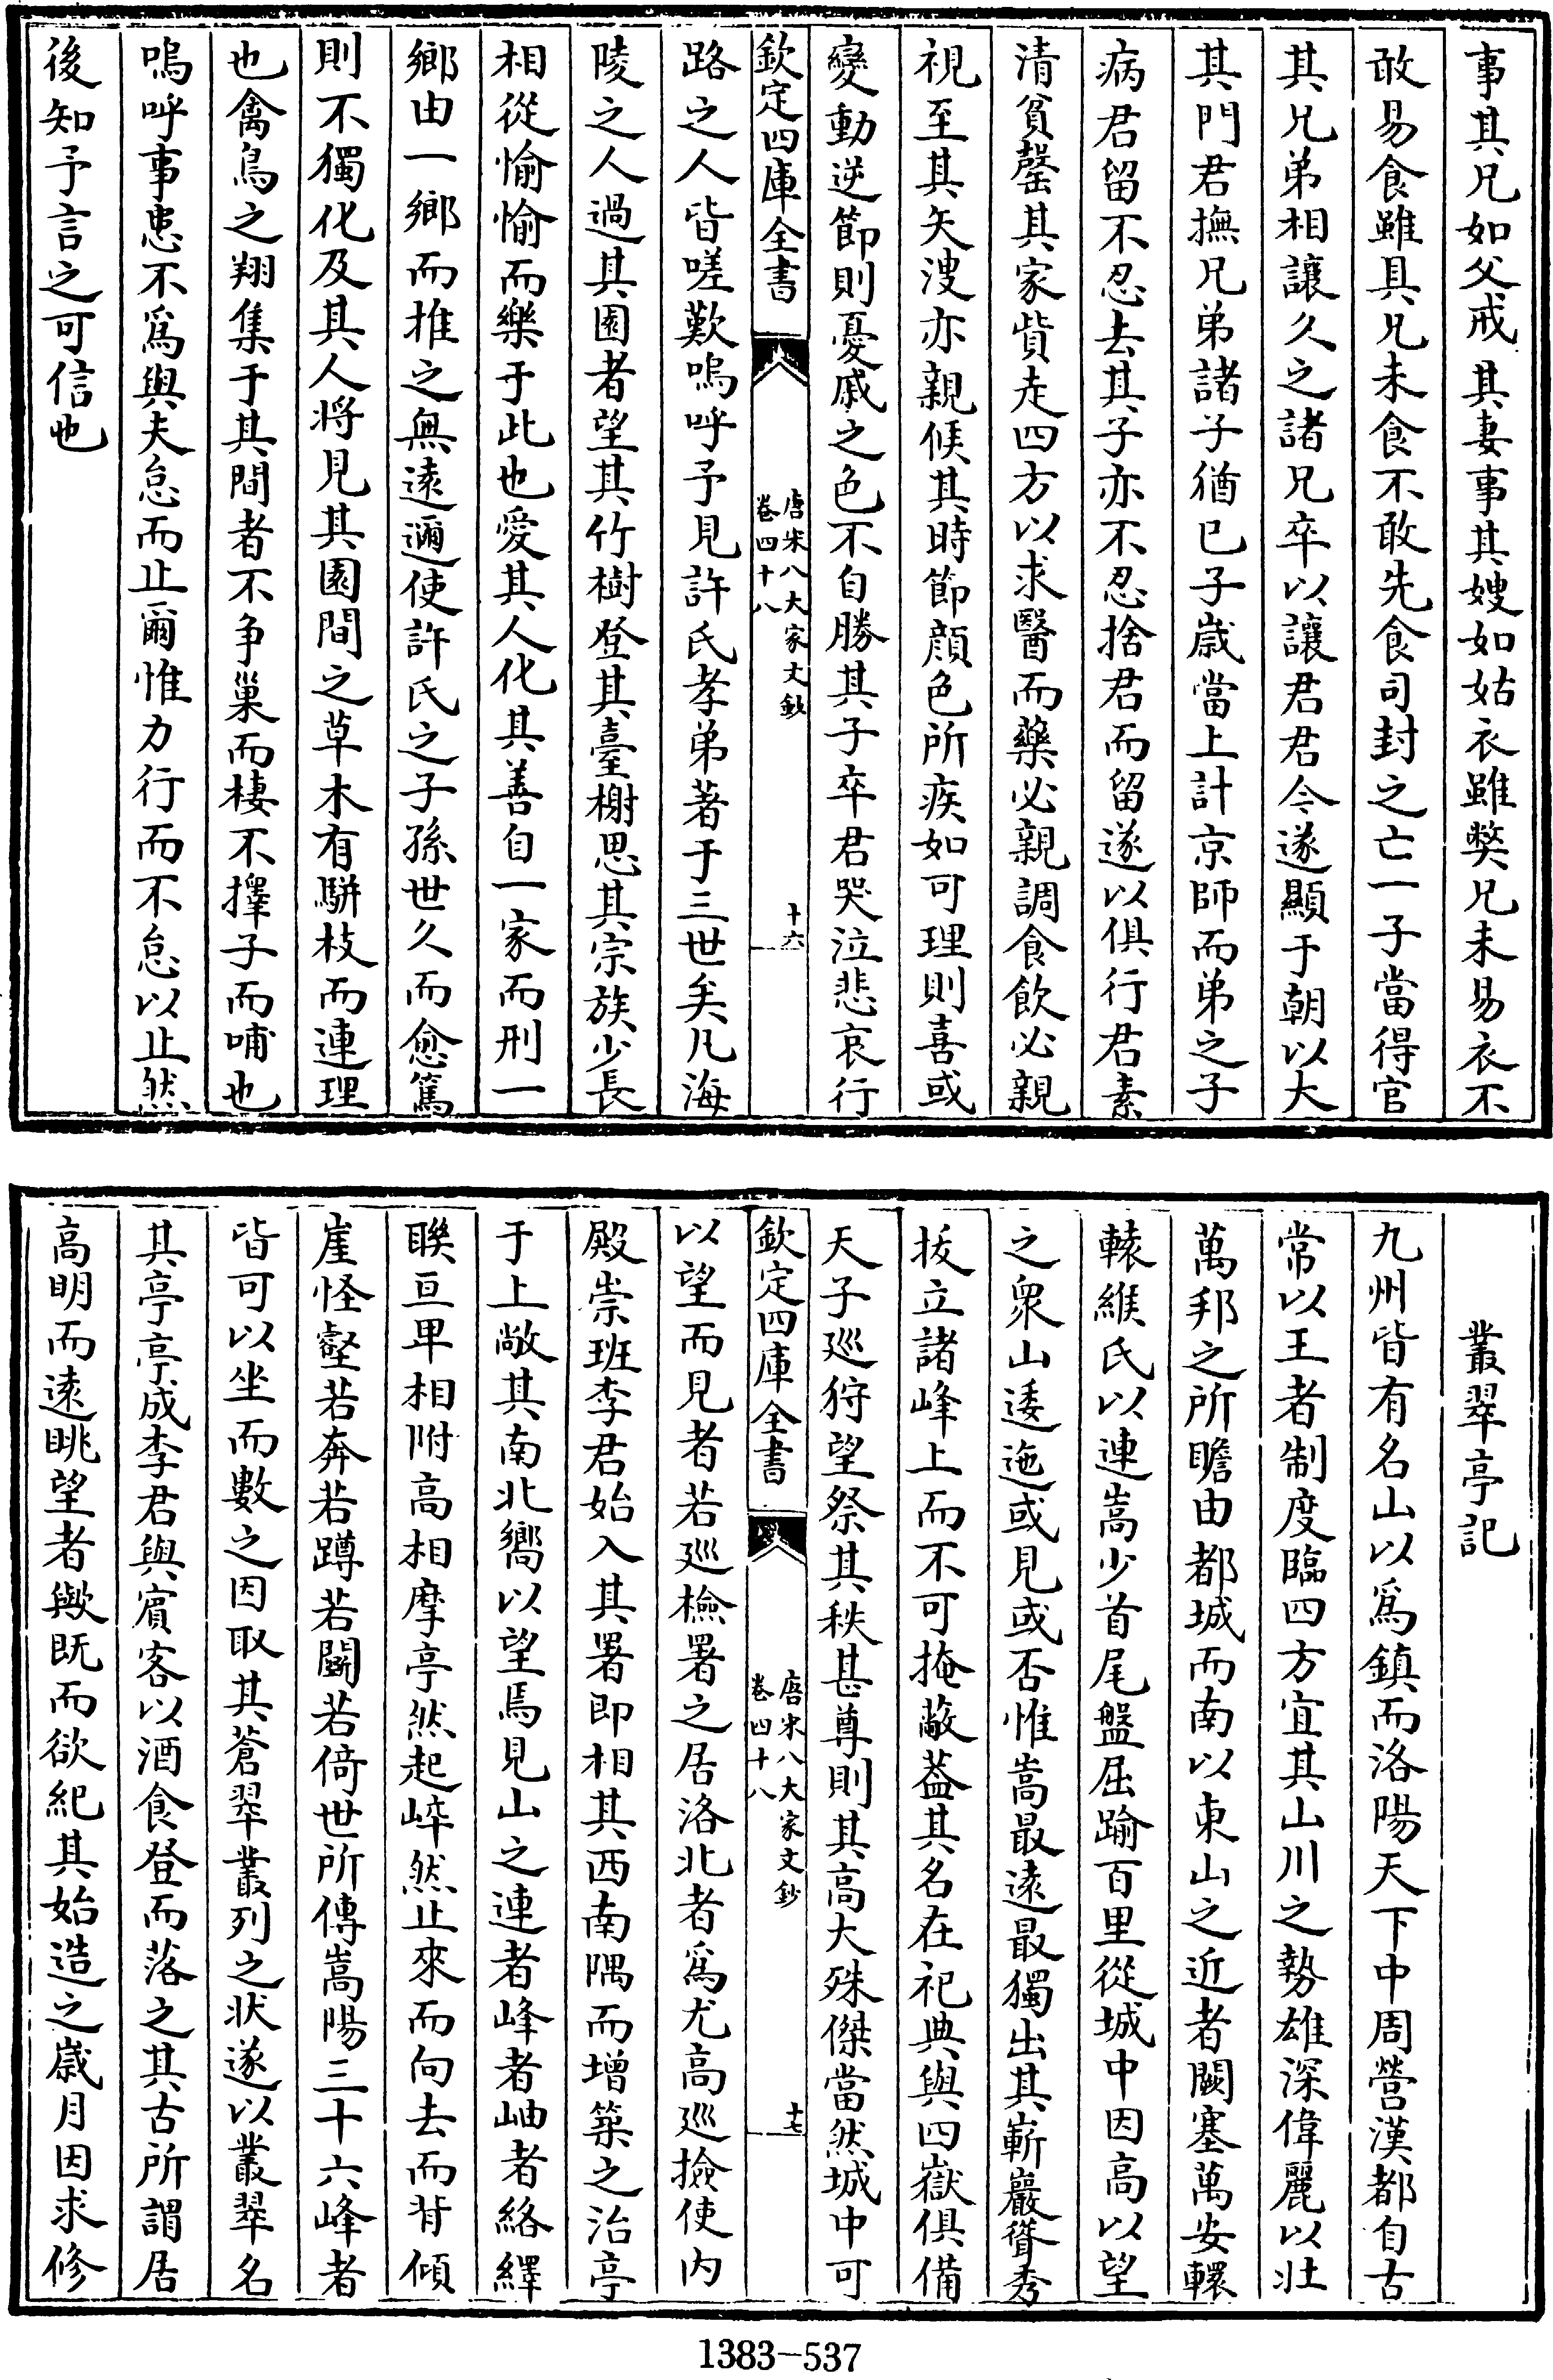 事其兄如父戒其妻事其嫂如姑衣雖獘兄未易衣不
敢易食雖具兄未食不敢先食司封之亡一子當得官
其兄弟相讓久之諸兄卒以讓君君今遂顯于朝以大
其門君撫兄弟諸子猶已子歲當上計京師而弟之子
病君留不忍去其子亦不忍捨君而留遂以俱行君素
清貧罄其家貲走四方以求醫而藥必親調食飲必親
視至其矢溲亦親候其時節顔色所疾如可理則喜或
變動逆節則憂戚之色不自勝其子卒君哭泣悲哀行
欽定四庫全書
唐宋八大家文鈔
卷四十八
十六
路之人皆嗟歎嗚呼予見許氏孝弟著于三世矣凡海
陵之人過其園者望其竹樹登其臺榭思其宗族少長
相從愉愉而樂于此也愛其人化其善自一家而刑一
鄉由一鄉而推之無遠邇使許氏之子孫世久而愈篤
則不獨化及其人將見其園間之草木有駢枝而連理
也禽鳥之翔集于其間者不争巢而棲不擇子而哺也
嗚呼事患不爲與夫怠而止爾惟力行而不怠以止然
後知予言之可信也
叢翠亭記
九州皆有名山以爲鎮而洛陽天下中周營漢都自古
常以王者制度臨四方宜其山川之勢雄深偉麗以壯
萬邦之所瞻由都城而南以東山之近者闕塞萬安轘
轅緱氏以連嵩少首尾盤屈踰百里從城中因高以望
之衆山逶迤或見或否惟嵩最遠最獨出其嶄巖聳秀
拔立諸峰上而不可掩蔽葢其名在祀典與四嶽俱備
天子廵狩望祭其秩甚尊則其高大殊傑當然城中可
欽定四庫全書
唐宋八大家文鈔
卷四十八
十七
以望而見者若廵檢署之居洛北者爲尤高廵撿使内
殿崇班李君始入其署即相其西南隅而增築之治亭
于上敞其南北嚮以望焉見山之連者峰者岫者絡繹
聯亘卑相附高相摩亭然起崪然止來而向去而背傾
崖怪壑若奔若蹲若鬬若倚世所傳嵩陽三十六峰者
皆可以坐而數之因取其蒼翠叢列之狀遂以叢翠名
其亭亭成李君與賓客以酒食登而落之其古所謂居
高明而遠眺望者歟既而欲紀其始造之歲月因求修
1383-537